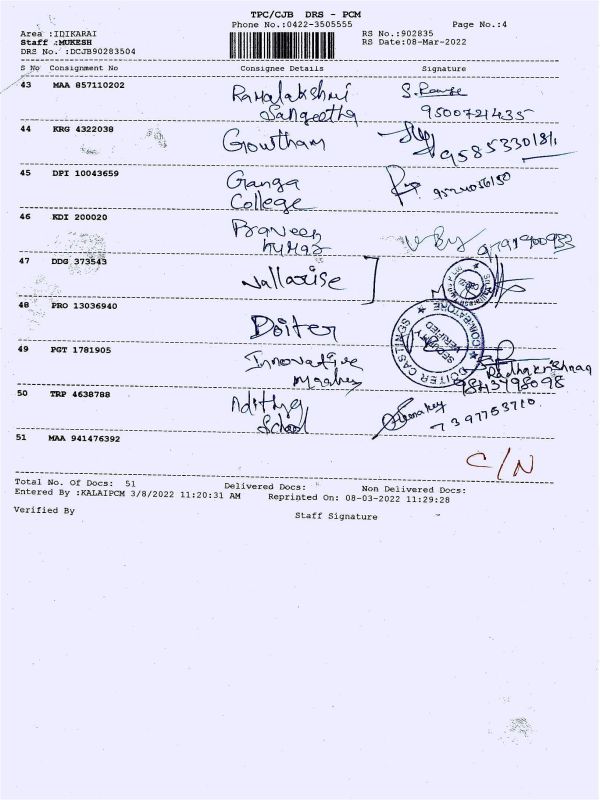 TPC/CJB DRS - PCM
Phone No.:0422-3505555
Page No.:4
Area :IDIKARAI
RS No.:902835
Staff :MUKESH
RS Date:08-Mar-2022
DRS No. :DCJB90283504
S No Consignment No Consignee Details Signature
43 MAA 857110202 Ramalakshmi S.
Sangeetha 9500721435
44 KRG 4322038 Gowtham
9585330181
45 DPI 10043659 Ganga
College
46 KDI 200020 Praveen
kumar
47 DDG 373543 Nallarise
48 PRO 13036940 Doiter
DOITER CASTINGS COIMBATORE
SECURITY VERIFIED
49 PGT 1781905 Innovative
Radhakrishnan
9843798098
50 TRP 4638788 Adithya
School 7397753710
51 MAA 941476392
C/N
Total No. Of Docs: 51 Delivered Docs: Non Delivered Docs:
Entered By :KALAIPCM 3/8/2022 11:20:31 AM Reprinted On: 08-03-2022 11:29:28
Verified By
Staff Signature